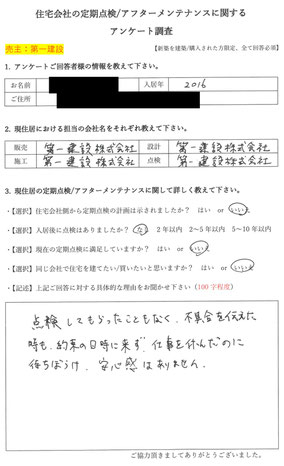 住宅会社の定期点検/アフターメンテナンスに関する
アンケート調査
売主：第一建設
【新築を建築/購入された方限定、全て回答必須】
1. アンケートご回答者様の情報を教えて下さい。
お名前 入居年 2016
ご住所
2. 現住居における担当の会社名をそれぞれ教えて下さい。
販売 第一建設株式会社 設計 第一建設株式会社
施工 第一建設株式会社 点検 第一建設株式会社
3. 現住居の定期点検/アフターメンテナンスに関して詳しく教えて下さい。
・【選択】住宅会社側から定期点検の計画は示されましたか？ はい or いいえ
・【選択】入居後に点検はありましたか？ なし 2年以内 2〜5年以内 5〜10年以内
・【選択】現在の定期点検に満足していますか？ はい or いいえ
・【選択】同じ会社で住宅を建てたい/買いたいと思いますか？ はい or いいえ
・【記述】上記ご回答に対する具体的な理由をお聞かせ下さい（100字程度）
点検してもらったこともなく、不具合を伝えた
時も、約束の日時に来ず、仕事を休んだのに
待ちぼうけ。安心感はありません。
ご協力頂きましてありがとうございました。